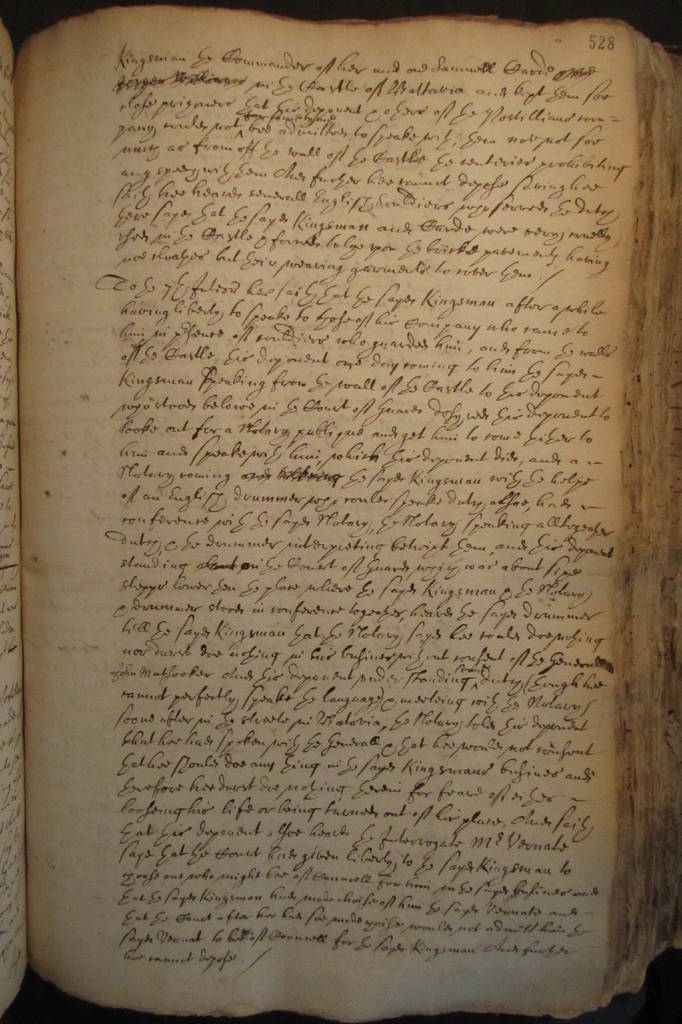 528
Kingsman the Commander of her and one Samuell Carde
in the Castle of Battavia and kept them soe
close prisoners that this deponent & others of the Postillians com=
pany could not bee admitted to speake with them nor not soe
much as from off the wall of the Castle the centeries prohibiting
any speech with them And further hee cannot depose saving hee
saith hee heard severall English souldiers who served the dutch
there saye that the sayd Kingsman and Carde were very cruelly
used in the Castle & forced to lye upon the bricke pavement having
noe cloathes but their wearing garments to cover them ./
To the 7th Interr hee saith that the sayd Kingsman after a while
having liberty to speake to those of his Company who came to
him in presence of souldiers who guarded him, and from the walls
of the Castle, this deponent one day coming to him the sayd
Kingsman speaking from the wall of the Castle to this deponent
who stood belowe in the Court of Guard desyred this deponent to
looke out for a Notary publique and get him to come thither to
him and speake with him, which this deponent did, and a
Notary coming the sayd Kingsman with the helpe
of an English drummer who could speake dutch, alsoe, had
conference with the sayd Notary, the Notary speaking alltogeather
dutch, & the drummer interpreting betwixt them, and this deponent
standing in the Court of Guard which was about sixe
stepps lower then the place where the sayd Kingsman & the Notary
& drummer stood in conference together, heard the sayd drummer
tell the sayd Kingsman that the Notary sayd hee could doe nothing
nor durst doe nothing in his busines without consent of the Generall
John Mathooker And this deponent understanding some dutch (though hee
cannot perfectly speake the language) & meeting with the Notary
soone after in the streete in Batavia, the Notary told this deponent
that hee had spoken with the Generall & that hee would not consent
that hee should doe any thing in the sayd Kingsmans busines and
therefore hee durst doe nothing therein for feare of either
looseing his life or being turned out of his place, And saith
that this deponent alsoe heard the Interrogate Mr Vernatt
saye that the Court had given liberty to the sayd Kingsman to
choose one who might bee of Councell for him in the sayd busines and
that the sayd Kingsman had made choise of him the sayd Vernatt and
that the Court after hee had soe made choise, would not admitt him the
sayd Vernat to bee of Councell for the sayd Kingsman And further
hee cannot depose ./